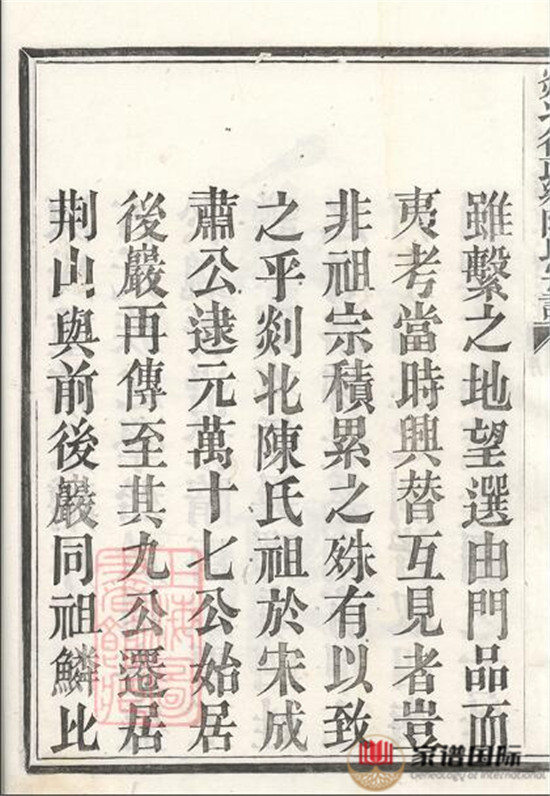 雖繫之地望選由門品而
夷考當時興替互見者豈
非祖宗積累之殊有以致
之乎剡北陳氏祖於宋成
肅公逮元萬十七公始居
後巖再傳至其九公遷居
荆山與前後巖同祖鱗比
家谱国际
Genealogy of International